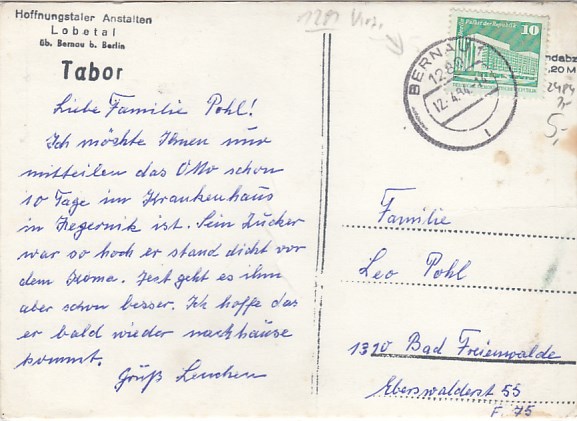 Hoffnungstaler Anstalten
Lobetal
üb. Bernau b. Berlin
Tabor
Liebe Familie Pohl!
Ich möchte Ihnen nur
mitteilen das Otto schon
10 Tage im Krankenhaus
in Hegernik ist. Sein Zucker
war so hoch er stand dicht vor
dem Koma. Jezt geht es ihm
aber schon besser. Ich hoffe das
er bald wieder nachhause
kommt.
Grüß Lenchen
10
Palast der Republik
BERNAU 1
1280
12.4.84
ndabz
,20 M
2484
5,-
Familie
Leo Pohl
1310 Bad Freienwalde
Eberswalderst 55
F. 75